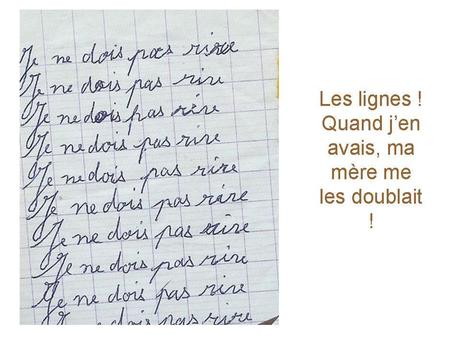 Je ne dois pas rire
Je ne dois pas rire
Je ne dois pas rire
Je ne dois pas rire
Je ne dois pas rire
Je ne dois pas rire
Je ne dois pas rire
Je ne dois pas rire
Je ne dois pas rire
Je ne dois pas rire
Les lignes !
Quand j’en
avais, ma
mère me
les doublait
!